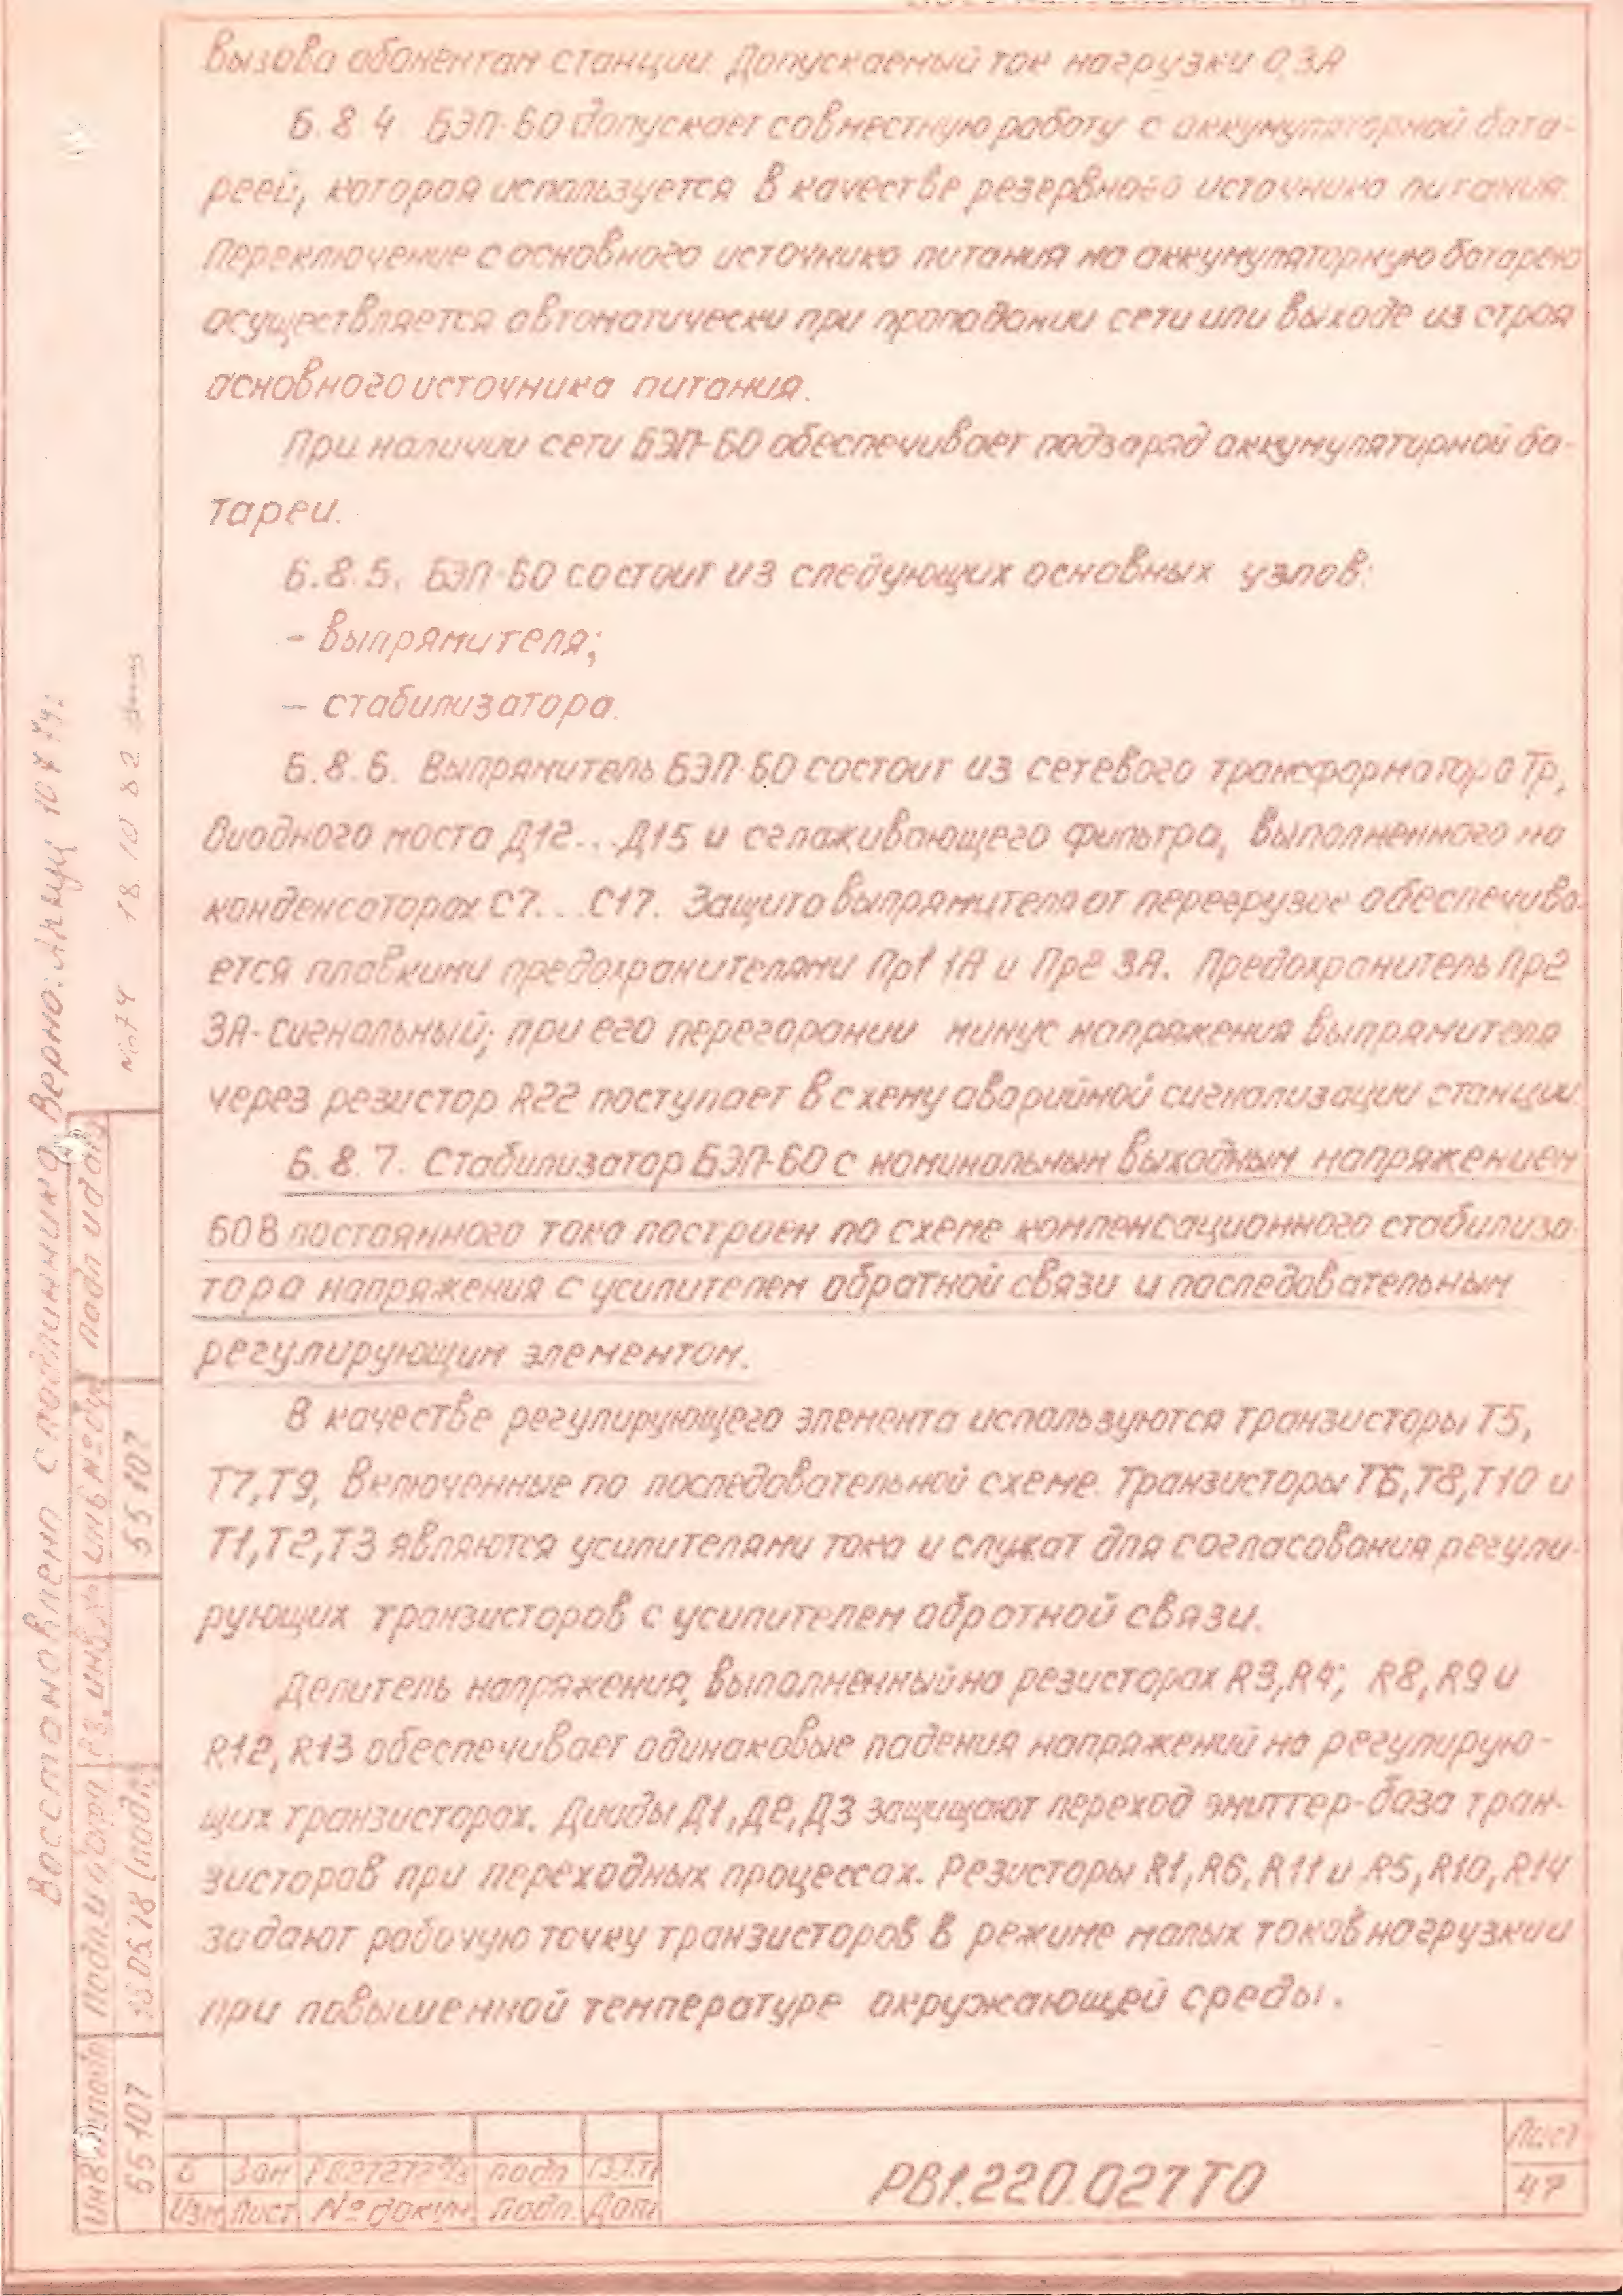 вызова абонентам станции. Допускаемый ток нагрузки 0,3А
6.8.4. БЭП-60 допускает совместную работу с аккумуляторной бата-
реей, которая используется в качестве резервного источника питания.
Переключение с основного источника питания на аккумуляторную батарею
осуществляется автоматически при пропадании сети или выходе из строя
основного источника питания.
При наличии сети БЭП-60 обеспечивает подзаряд аккумуляторной ба-
тареи.
6.8.5. БЭП-60 состоит из следующих основных узлов:
- выпрямителя;
- стабилизатора.
6.8.6. Выпрямитель БЭП-60 состоит из сетевого трансформатора Тр,
диодного моста Д12...Д15 и сглаживающего фильтра, выполненного на
конденсаторах С7...С17. Защита выпрямителя от перегрузок обеспечива-
ется плавкими предохранителями Пр1 1А и Пр2 3А. Предохранитель Пр2
3А-сигнальный; при его перегорании минус напряжения выпрямителя
через резистор R22 поступает в схему аварийной сигнализации станции.
6.8.7. Стабилизатор БЭП-60 с номинальным выходным напряжением
60В постоянного тока построен по схеме компенсационного стабилиза-
тора напряжения с усилителем обратной связи и последовательным
регулирующим элементом.
В качестве регулирующего элемента используются транзисторы Т5,
Т7,Т9, включенные по последовательной схеме. Транзисторы Т6,Т8,Т10 и
Т1,Т2,Т3 являются усилителями тока и служат для согласования регули-
рующих транзисторов с усилителем обратной связи.
Делитель напряжения, выполненный на резисторах R3,R4; R8,R9 и
R12,R13 обеспечивает одинаковые падения напряжений на регулирую-
щих транзисторах. Диоды Д1,Д2,Д3 защищают переход эмиттер-база тран-
зисторов при переходных процессах. Резисторы R1,R6,R11 и R5,R10,R14
задают рабочую точку транзисторов в режиме малых токов нагрузки и
при повышенной температуре окружающей среды.
Восстановлено с подлинника Верно:
18.10.82
подп и дата
инв № дубл
55107
Вз. инв. №
Подп и дата
16.05.78 (подп)
инв № подл
55107
6 Зам подп
Изм Лист № докум Подп. Дата
РВ1.220.027ТО
Лист
47